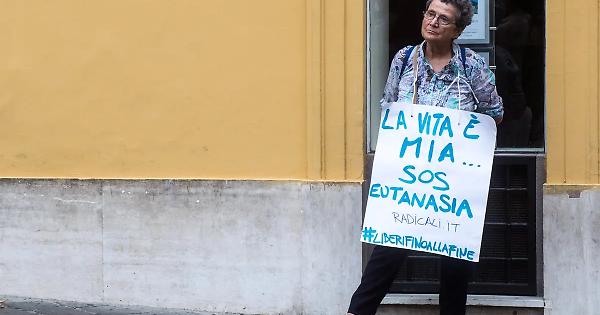 LA VITA È
MIA...
SOS
EUTANASIA
RADICALI.IT
#LIBERIFINOALLAFINE